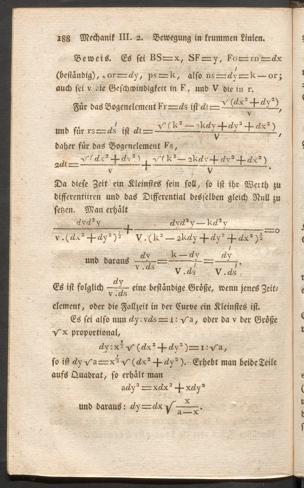 188 Mechanik III. 2. Bewegung in krummen Linien.
Beweis. Es sei BS=x, SF=y, Fo=rn=dx
(beständig), or=dy, ps=k, also ns=dy'=k−or;
auch sei v die Geschwindigkeit in F, und V die in r.
Für das Bogenelement Fr=ds ist dt=√(dx²+dy²)/v
und für rs=ds' ist dt=√(k²−2kdy+dy²+dx²)/V,
daher für das Bogenelement Fs,
2dt=√(dx²+dy²)/v+√(k²−2kdy+dy²+dx²)/V.
Da diese Zeit ein Kleinstes sein soll, so ist ihr Werth zu
differentiiren und das Differential desselben gleich Null zu
setzen. Man erhält
dyd²y/v.(dx²+dy²)^½+dyd²y−kd²y/V.(k²−2kdy+dy²+dx²)^½=0
und daraus dy/v.ds=k−dy/V.ds'=dy'/V.ds'.
Es ist folglich dy/v.ds eine beständige Größe, wenn jenes Zeit-
element, oder die Fallzeit in der Curve ein Kleinstes ist.
Es sei also nun dy:vds=1:√a, oder da v der Größe
√x proportional,
dy:x^½√(dx²+dy²)=1:√a,
so ist dy√a=x^½√(dx²+dy²). Erhebt man beide Teile
aufs Quadrat, so erhält man
ady²=xdx²+xdy²
und daraus: dy=dx√x/a−x.